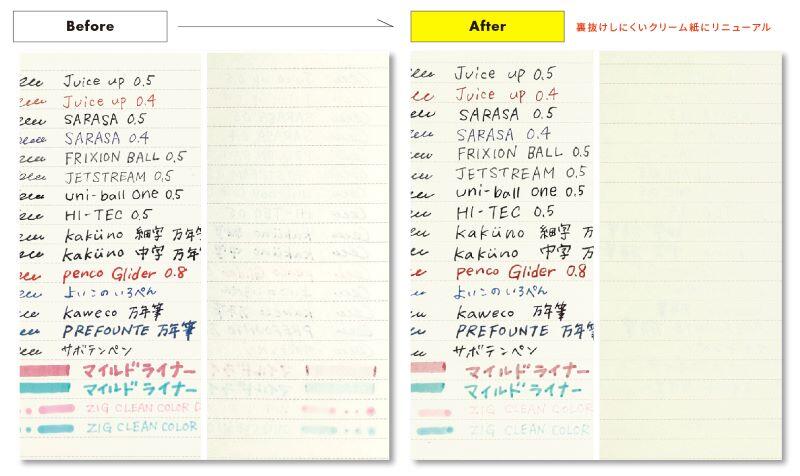 Before
After
裏抜けしにくいクリーム紙にリニューアル
Juice up 0.5
Juice up 0.4
SARASA 0.5
SARASA 0.4
FRIXION BALL 0.5
JETSTREAM 0.5
uni-ball one 0.5
HI-TEC 0.5
kaküno 細字 万年
kaküno 中字 万年
penco Glider 0.8
よいこのいろぺん
kaweco 万年筆
PREFOUNTE 万年筆
サボテンペン
マイルドライナー
マイルドライナー
ZIG CLEAN COLOR
ZIG CLEAN COLOR
Juice up 0.5
Juice up 0.4
SARASA 0.5
SARASA 0.4
FRIXION BALL 0.5
JETSTREAM 0.5
uni-ball one 0.5
HI-TEC 0.5
kaküno 細字 万
kaküno 中字 万
penco Glider 0.8
よいこのいろぺん
kaweco 万年筆
PREFOUNTE 万年筆
サボテンペン
マイルドライナー
マイルドライナー
ZIG CLEAN COLOR
ZIG CLEAN COLOR